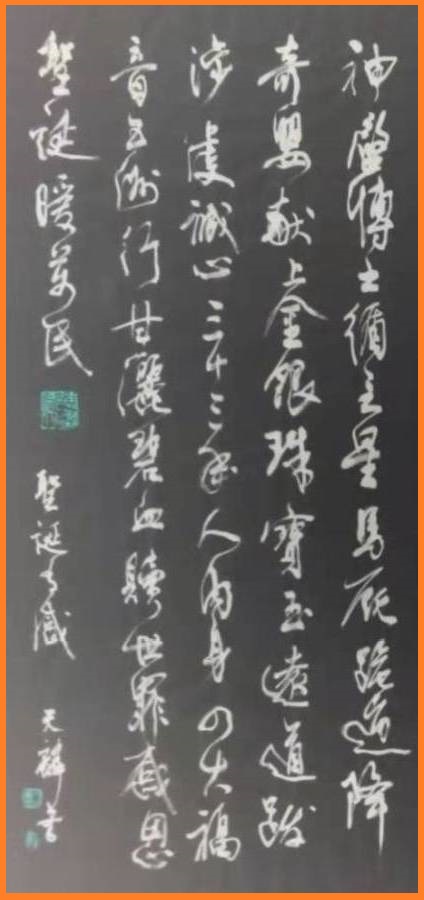 神博士循主星馬厩跪迎降
奇嬰献上金銀珠寶玉遠道跋
涉虔誠心三十三年人肉身四大福
音五洲行甘灑碧血贖世罪感恩
聖誕暖萬民
聖誕有感
天麟書